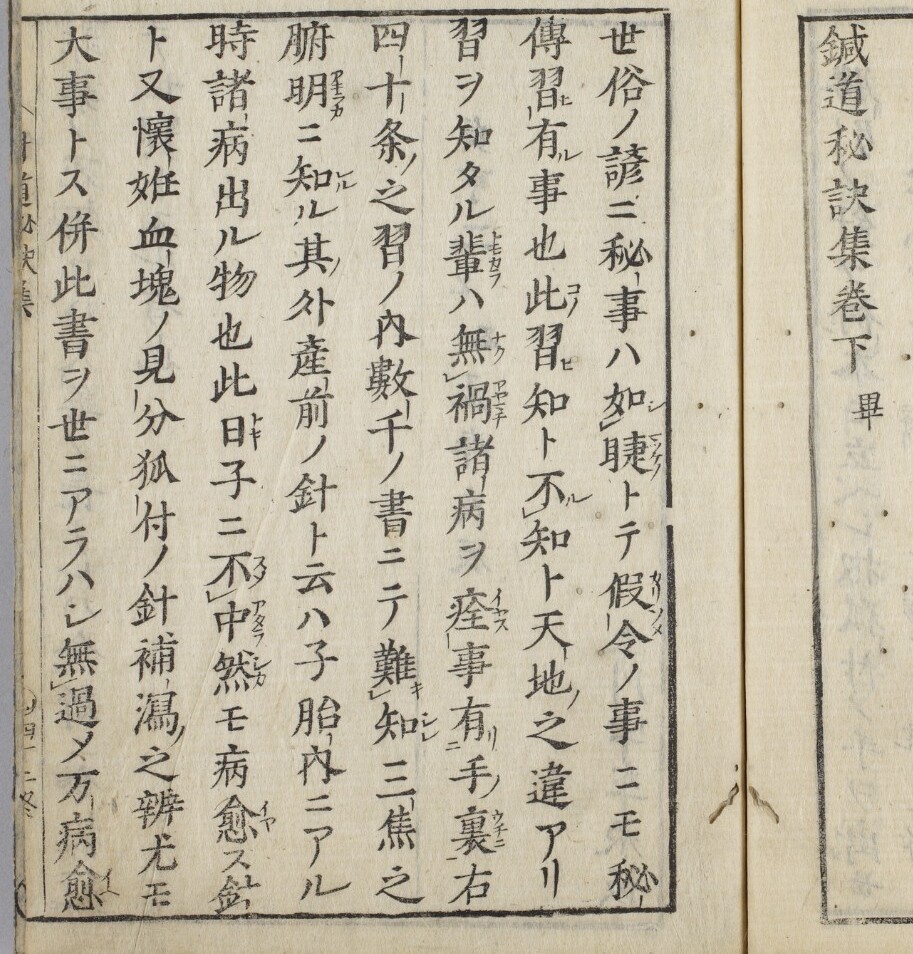 鍼道秘訣集巻下 畢
世俗ノ諺ニ秘事ハ如睫トテ假令ノ事ニモ秘
傳習有ル事也此習知ト不知ト天地ノ之違アリ
習ヲ知タル輩ハ無禍諸病ヲ痊事有手ノ裏右
四十条ノ之習ノ内數千ノ書ニテ難知三焦之
腑明ニ知ル其ノ外産前ノ針ト云ハ子胎内ニアル
時諸病出ル物也此日子ニ不中然モ病愈ス針
ト又懐妊血塊ノ見分狐付ノ針補瀉ノ之辨尤モ
大事トス併此書ヲ世ニアラハシ無過メ万病愈